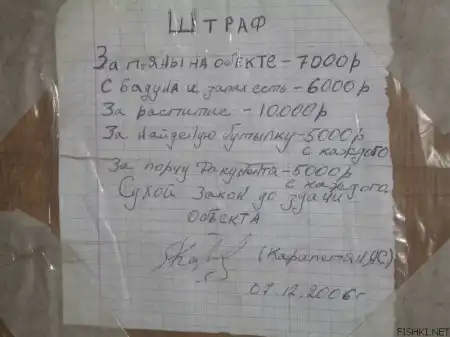 ШТРАФ
За пяны на обекте - 7000р
С бадуна и запах есть - 6000р
За распитие - 10.000р
За найденую бутылку - 5000р
с каждого
За порчу - 5000р
с каждога
Сухой закон до здачи
объекта
(Карапетян АС)
07.12.2006г
FISHKI.NET